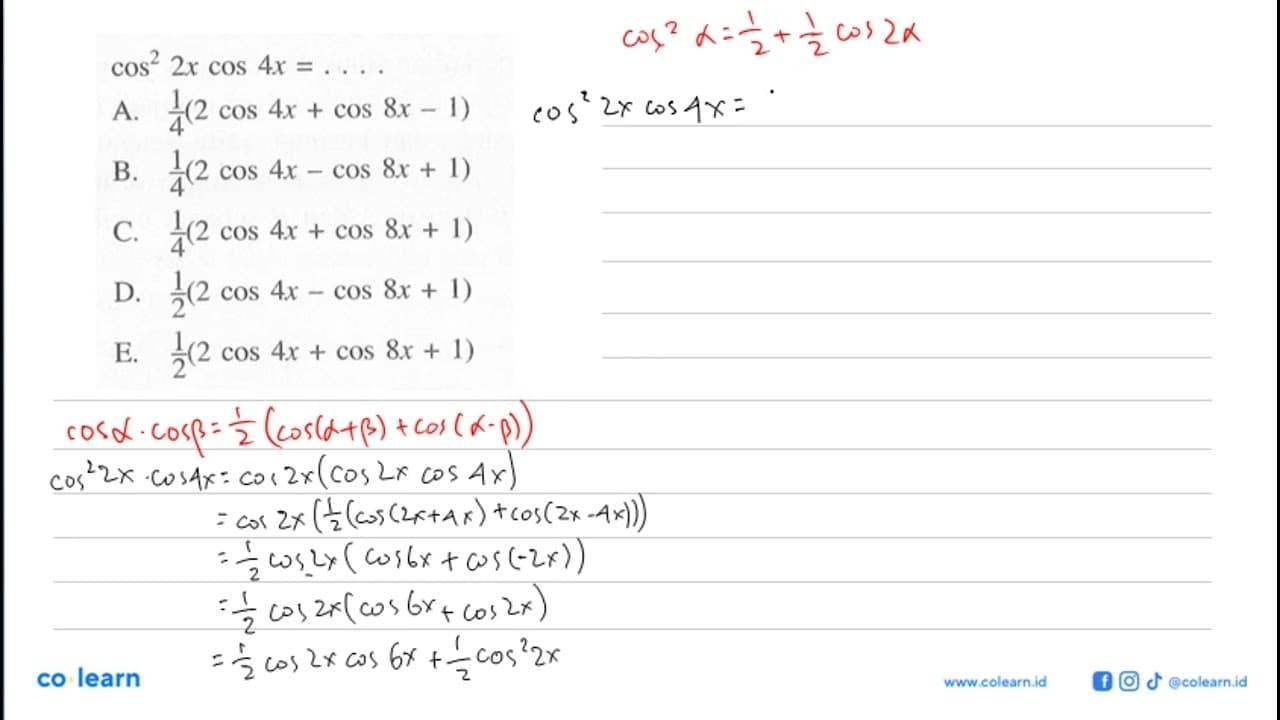 cos² 2x cos 4x = . . . .
A. 1/4(2 cos 4x + cos 8x − 1)
B. 1/4(2 cos 4x − cos 8x + 1)
C. 1/4(2 cos 4x + cos 8x + 1)
D. 1/2(2 cos 4x − cos 8x + 1)
E. 1/2(2 cos 4x + cos 8x + 1)
cos² α = 1/2 + 1/2 cos 2α
cos² 2x cos 4x =
cosα · cosβ = 1/2 (cos(α+β) + cos(α-β))
cos² 2x · cos4x = cos 2x (cos 2x cos 4x)
= cos 2x (1/2 (cos(2x+4x) + cos(2x-4x)))
= 1/2 cos 2x (cos 6x + cos(-2x))
= 1/2 cos 2x (cos 6x + cos 2x)
= 1/2 cos 2x cos 6x + 1/2 cos² 2x
co learn
www.colearn.id
@colearn.id